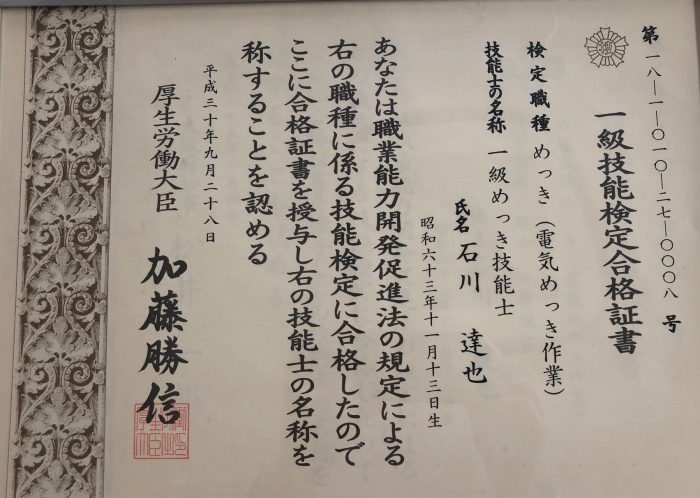 第一八―一―〇一〇―二七―〇〇〇八号
一級技能検定合格証書
検定職種 めっき（電気めっき作業）
技能士の名称 一級めっき技能士
氏名 石川 達也
昭和六十三年十一月十三日生
あなたは職業能力開発促進法の規定による
右の職種に係る技能検定に合格したので
ここに合格証書を授与し右の技能士の名称を
称することを認める
平成三十年九月二十八日
厚生労働大臣 加藤勝信